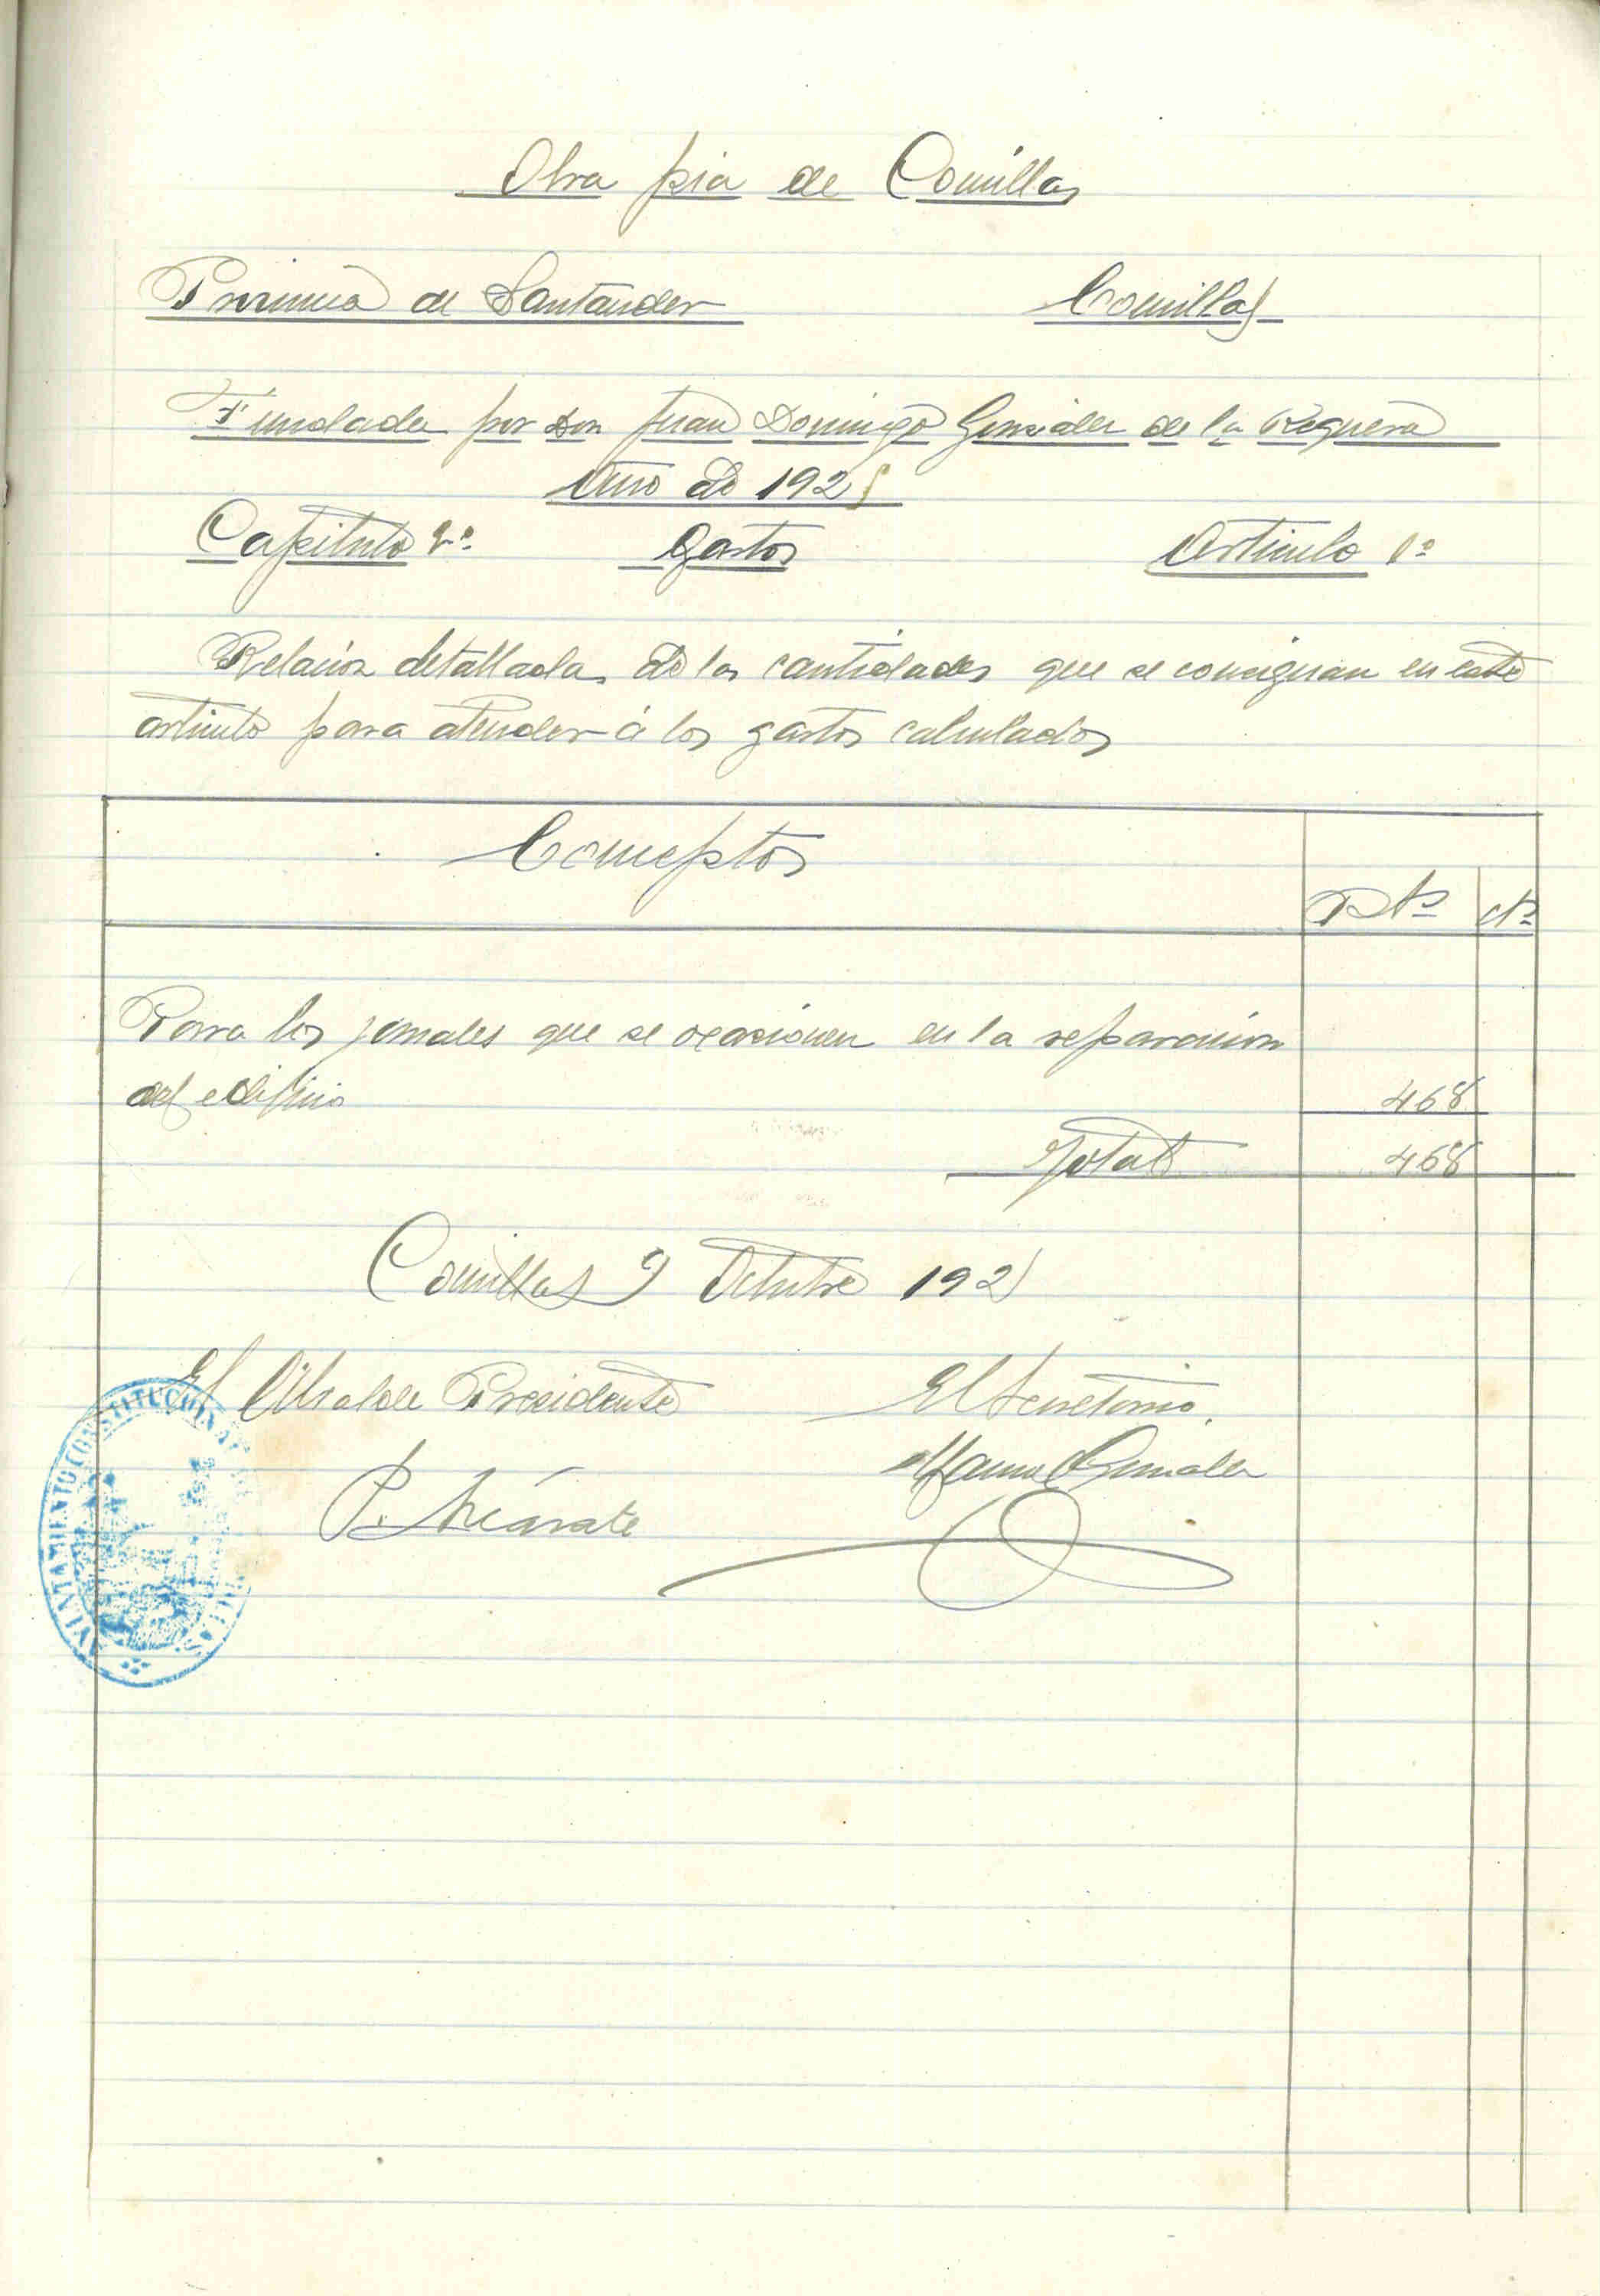 Obra pia de Comillas
Provincia de Santander Comillas
Fundada por Don Juan Domingo Gonzalez de la Reguera
Año de 192
Capitulo Gastos Articulo 1º
Relacion detallada de las cantidades que se consignan en este
articulo para atender á los gastos calculados
Conceptos
Ptas cts
Para los jornales que se ocasionen en la reparacion
del edificio 468
Total 468
Comillas 9 Octubre 192
El Alcalde Presidente El Secretario
P. González
AYUNTAMIENTO CONSTITUCIONAL DE COMILLAS